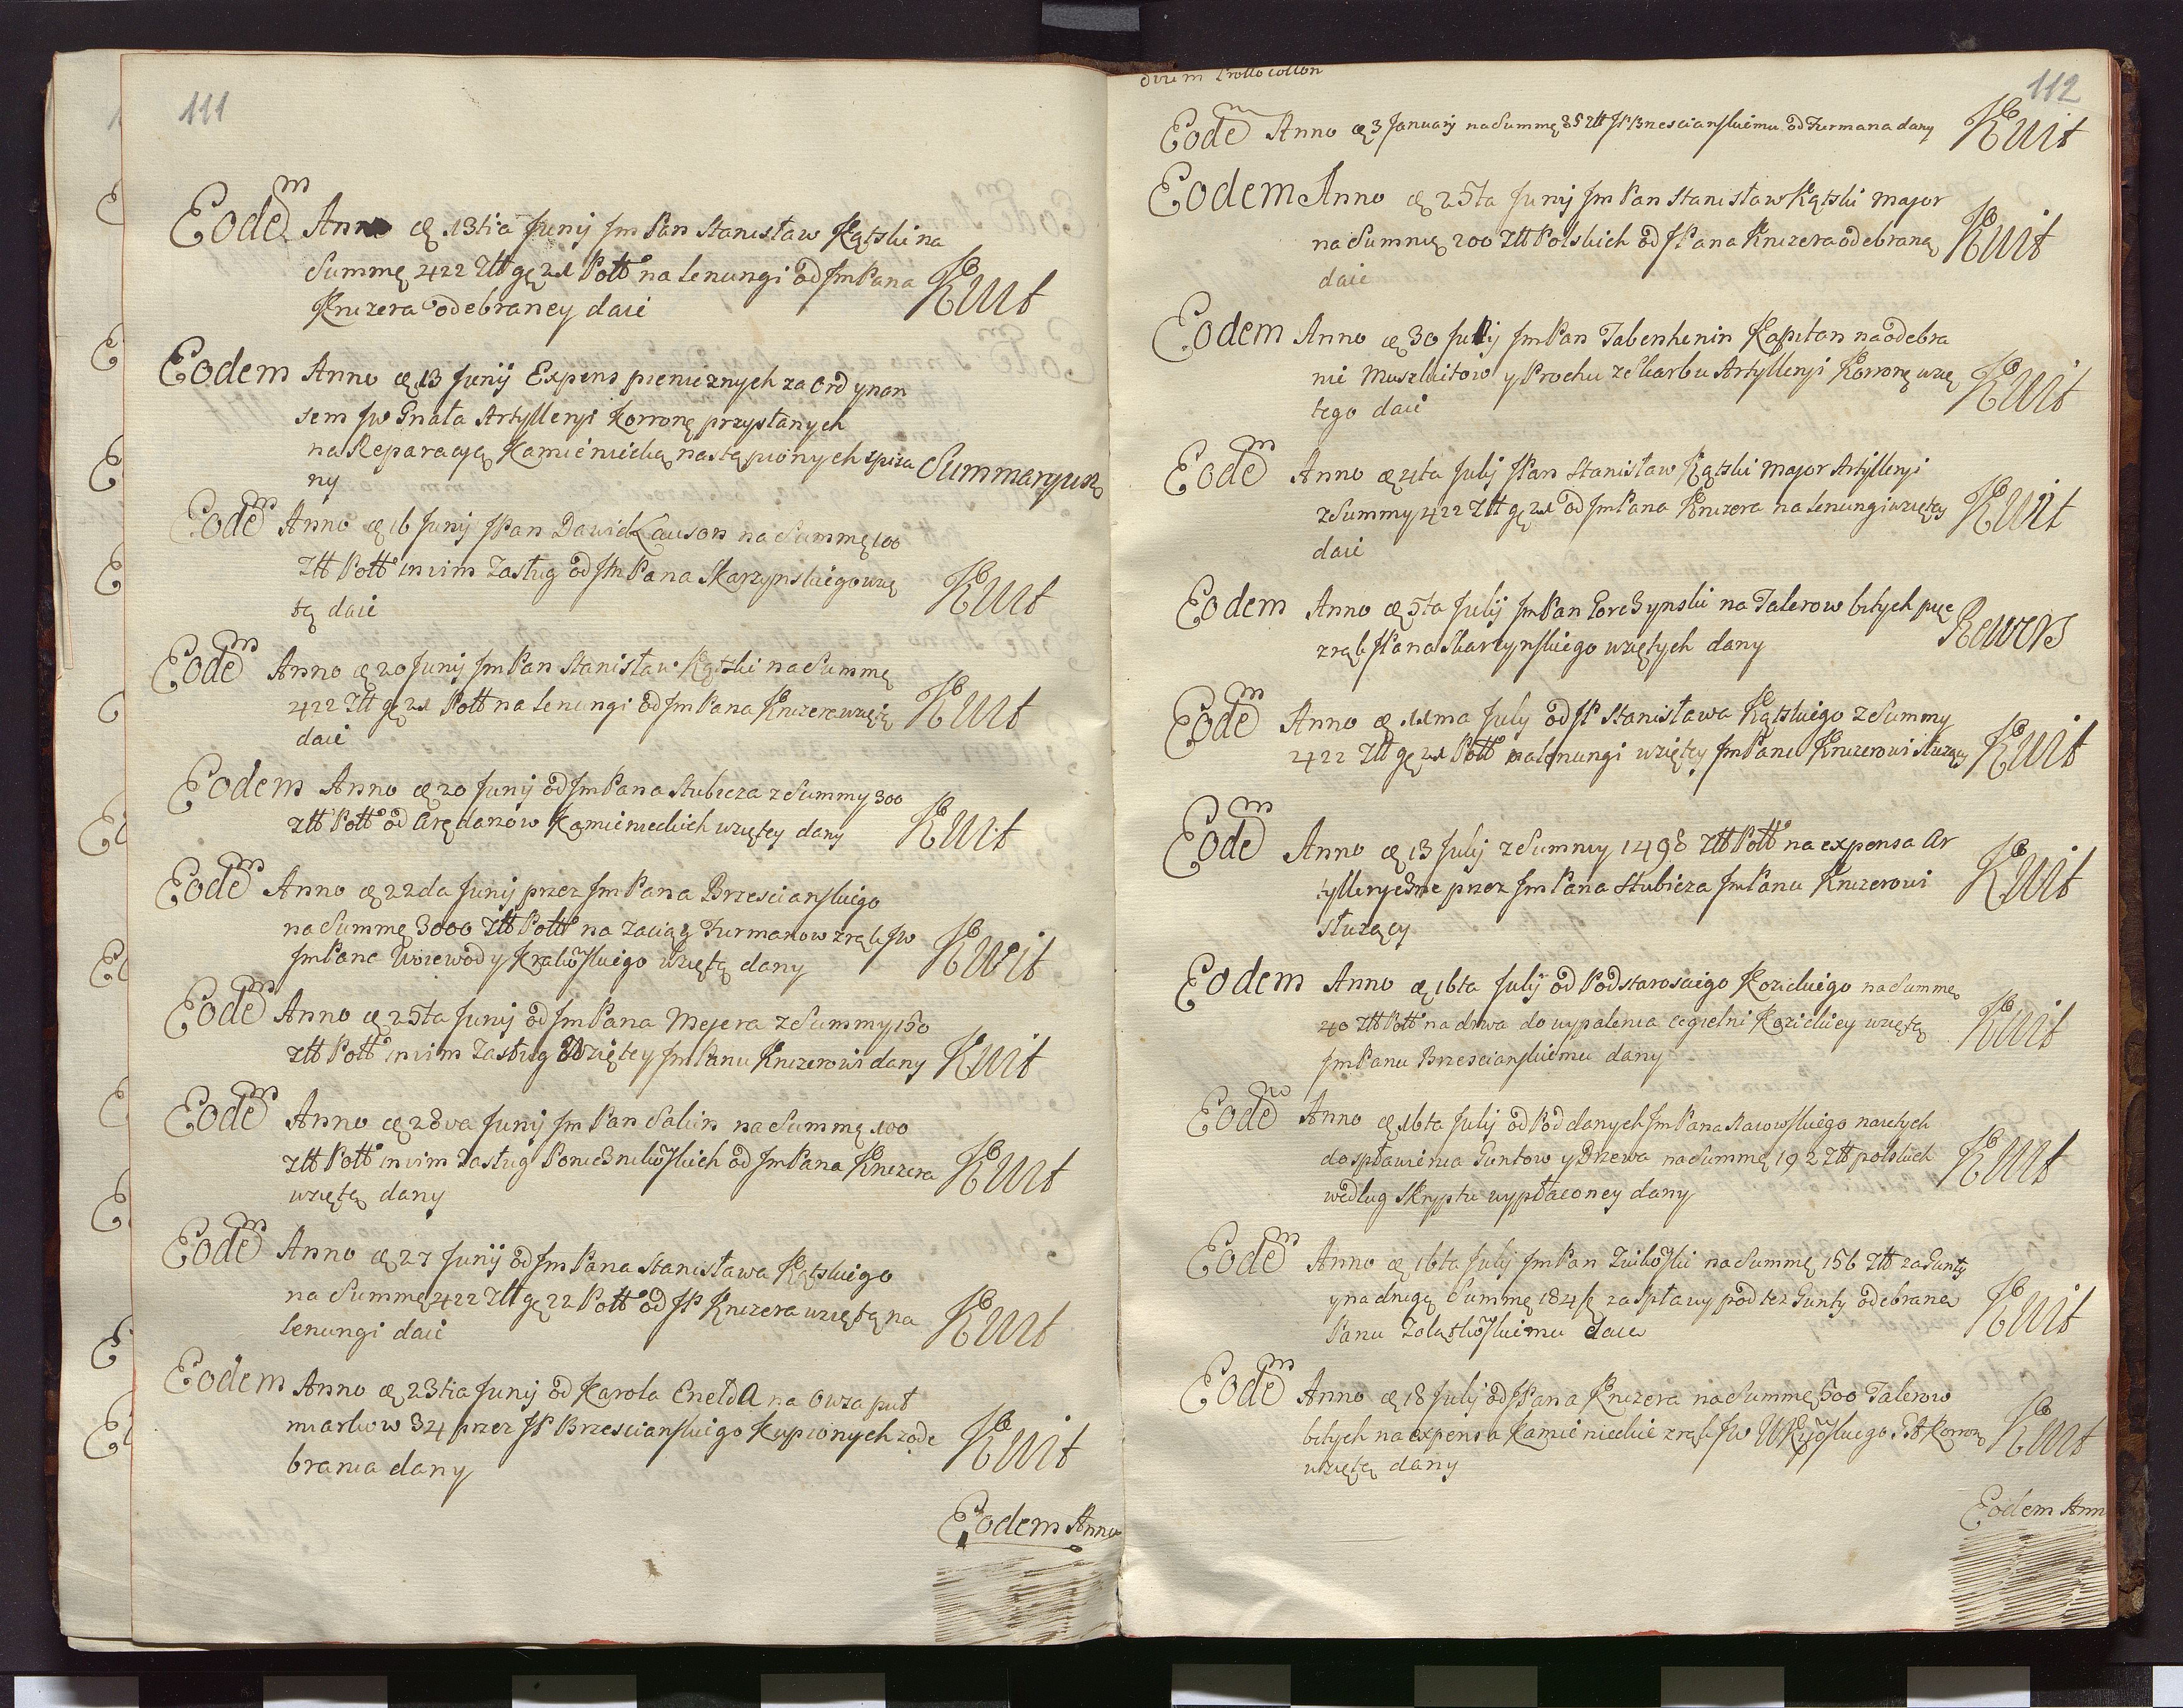 111
Eodem Anno æ 13tia Junij Jm Pan Stanisław Kątski na
Summę 422 Złt gę 22 Połł na lenungi od Jm Pana
Knuzera odebraney daie
Kwit
Eodem Anno æ 13 Junij Expens pienieznych za Ordynan
sem Jw Gnała Artylleryi Korronę przysłanych
na Reparacyą Kamieniecką nastąpionych spisa
ny
Summaryusz
Eodem Anno æ 16 Junij JPan Dawid Lauson na Summę 100
Złt Połł in vim Zasług od Jm Pana Skarzynskiego wzię
tą daie
Kwit
Eodem Anno æ 20 Junij Jm Pan Stanisław Kątski na Summę
422 Złt gę 22 Połł na lenungi od Jm Pana Knuzera wziętą
daie
Kwit
Eodem Anno æ 20 Junij od Jm Pana Stubicza z Summy 300
Złt Połł od Arędarzow Kamienieckich wziętey dany
Kwit
Eodem Anno æ 22da Junij przez Jm Pana Brzescianskiego
na Summę 3000 Złt Połł na Zaciąg Furmanow z rąk Jw
Jm Pana Woiewody Krakowskiego wziętą dany
Kwit
Eodem Anno æ 25ta Junij od Jm Pana Mejera z Summy 150
Złt Połł in vim Zasług Wziętey Jm Panu Knuzerowi dany
Kwit
Eodem Anno æ 28va Junij Jm Pan Salin na Summę 100
Złt Połł in vim Zasług od Jm Pana Knuzera
wziętą dany
Kwit
Eodem Anno æ 27 Junij od Jm Pana Stanisława Kątskiego
na Summę 422 Złt gę 22 Połł od JP Knuzera wziętą na
lenungi daie
Kwit
Eodem Anno æ 23tia Junij od Karola Enelda na Owsa puł
miarkow 34 przez JP Brzescianskiego Kupionych z ode
brania dany
Kwit
Eodem Anno
112
Prottocollon
Eodem Anno æ 3 January na Summę 85 Złt JP Brzescianskiemu od Furmana dany
Kwit
Eodem Anno æ 25ta Junij Jm Pan Stanisław Kątski Major
na Summę 200 Złt Polskich od JPana Knuzera odebraną
daie
Kwit
Eodem Anno æ 30 Julij Jm Pan Tabenhenin Kapitan na odebra
nie Muszkietow y Prochu ze Skarbu Artyllerji Korronę wzię
tego daie
Kwit
Eodem Anno æ 4ta Julij JPan Stanisław Kątski Major Artyllerji
z Summy 422 Złt gę 22 od Jm Pana Knuzera na lenungi wziętey
daie
Kwit
Eodem Anno æ 5ta Julij Jm Pan Gorczynski na Talerow bitych pię
z rąk JPana Skarzynskiego wziętych dany
Rewers
Eodem Anno æ 11ma July od JP Stanisława Kątskiego z Summy
422 Złt gę 22 Połł na lenungi wziętey Jm Panu Knuzerowi służący
Kwit
Eodem Anno æ 13 Julij z Summy 1498 Złt Połł na expensa Ar
tylleryczne przez Jm Pana Stubicza Jm Panu Knuzerowi
służący
Kwit
Eodem Anno æ 16ta Julij od Podstarosciego Kozickiego na Summę
40 Złt Połł na drwa do wypalenia cegielni Kozickiey wziętą
Jm Panu Brzescianskiemu dany
Kwit
Eodem Anno æ 16ta Julij od Poddanych Jm Pana naietych
do spławienia Guntow y Drzewa na Summę 192 Złt polskich
według Skryptu wypłaconey dany
Kwit
Eodem Anno æ 16ta Julij Jm Pan na Summę 156 Złt za Gunty
y na drugą Summę 184 za spławy pod tez Gunty odebrane
Panu daie
Kwit
Eodem Anno æ 18 Julij od JPana Knuzera na Summę 500 Talerow
bitych na expensa Kamienieckie z rąk Jw Korronę
wziętą dany
Kwit
Eodem Ann